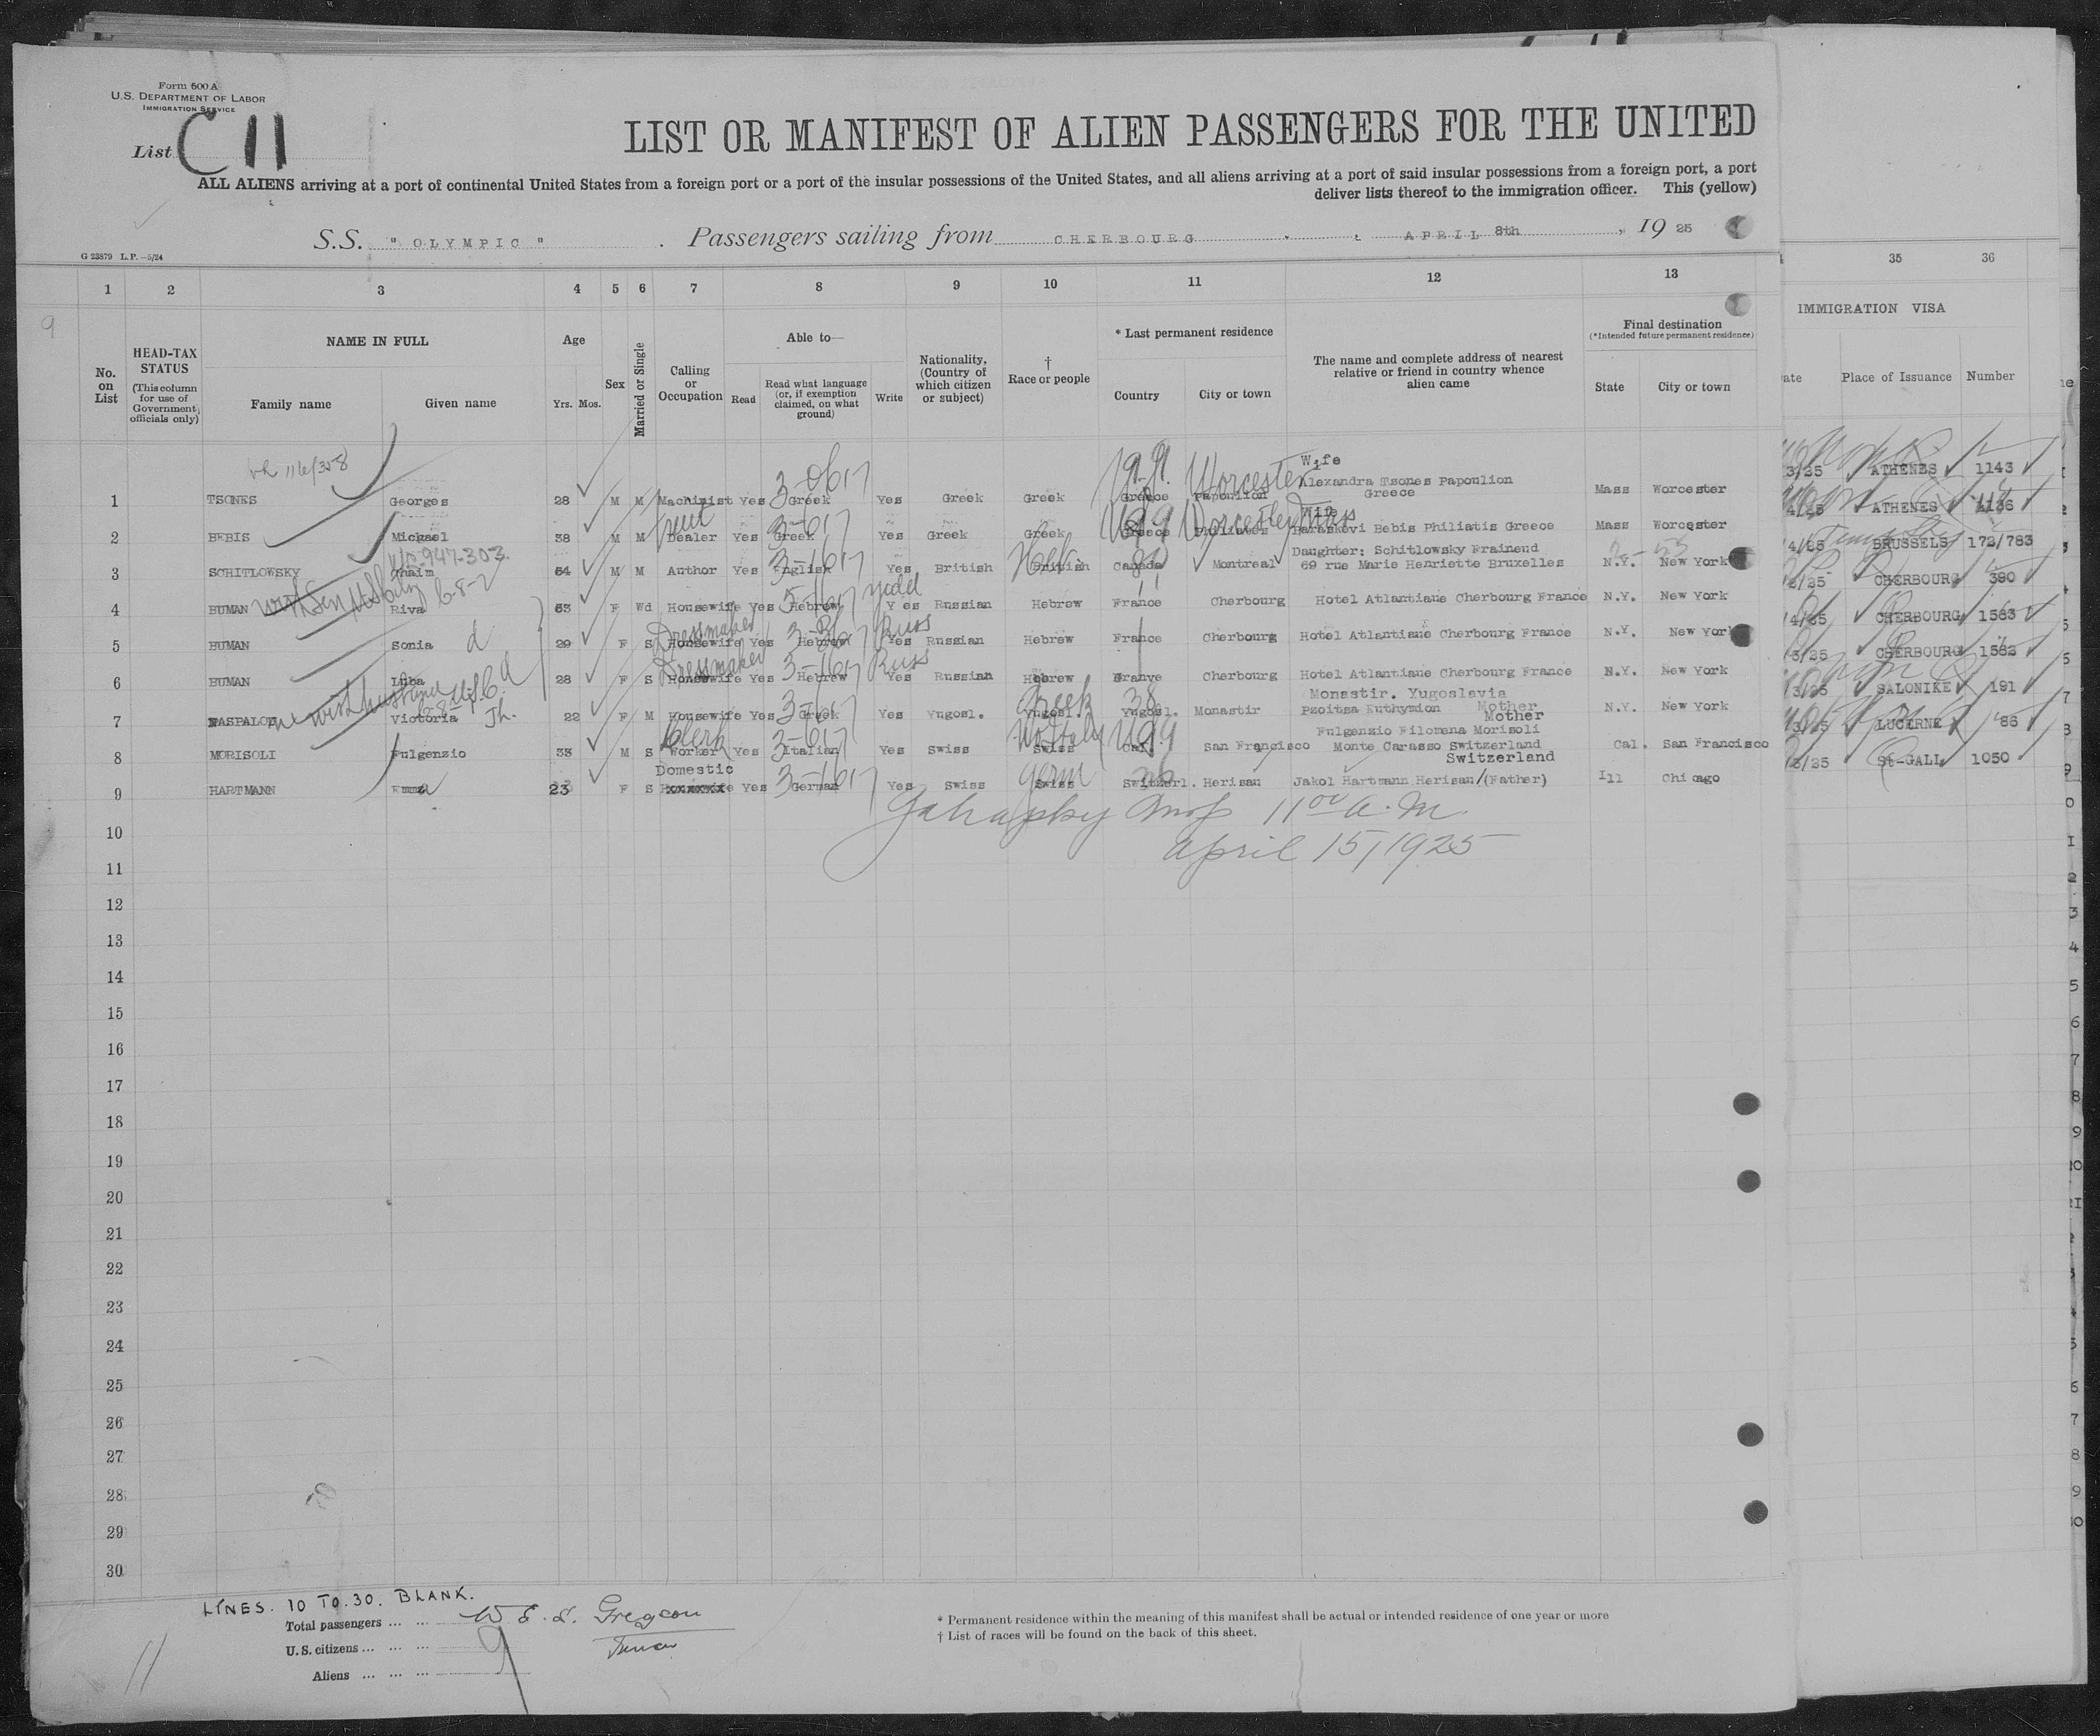 Form 500 A
U.S. DEPARTMENT OF LABOR
IMMIGRATION SERVICE
List C 11
LIST OR MANIFEST OF ALIEN PASSENGERS FOR THE UNITED
ALL ALIENS arriving at a port of continental United States from a foreign port or a port of the insular possessions of the United States, and all aliens arriving at a port of said insular possessions from a foreign port, a port
deliver lists thereof to the immigration officer. This (yellow)
S.S. "OLYMPIC" . Passengers sailing from CHERBOURG , APRIL 8th , 19 25
G 23879 L.P.—5/24
1 2 3 4 5 6 7 8 9 10 11 12 13 35 36
No. on List
HEAD-TAX STATUS (This column for use of Government officials only)
NAME IN FULL Family name Given name
Age Yrs. Mos.
Sex
Married or Single
Calling or Occupation
Able to— Read Read what language (or, if exemption claimed, on what ground) Write
Nationality, (Country of which citizen or subject)
† Race or people
* Last permanent residence Country City or town
The name and complete address of nearest relative or friend in country whence alien came
Final destination (*Intended future permanent residence) State City or town
IMMIGRATION VISA
Place of Issuance Number
1 TSONES Georges 28 M M Machinist Yes Greek Yes Greek Greek Greece Papoulion Worcester Wife Alexandra Tsones Papoulion Greece Mass Worcester 3/25 ATHENES 1143
2 BEBIS Michael 38 M M Fruit Dealer Yes Greek Yes Greek Greek Greece Philiates Worcester Mass Wife Paraskevi Bebis Philiatis Greece Mass Worcester 4/25 ATHENES 1136
3 SCHITLOWSKY Chaim 54 M M Author Yes English Yes British British Heb Canada Montreal Daughter: Schitlowsky Fraineud 69 rue Marie Henriette Bruxelles N.Y. New York 4/25 BRUSSELS 172/783
4 BUMAN Riva 53 F Wd Housewife Yes Hebrew Yidd Yes Russian Hebrew France Cherbourg Hotel Atlantiane Cherbourg France N.Y. New York CHERBOURG 390
5 BUMAN Sonia d 29 F S Dressmaker Housewife Yes Hebrew Russ Yes Russian Hebrew France Cherbourg Hotel Atlantiane Cherbourg France N.Y. New York 4/25 CHERBOURG 1583
6 BUMAN Luba d 28 F S Dressmaker Housewife Yes Hebrew Russ Yes Russian Hebrew Franve Cherbourg Hotel Atlantiane Cherbourg France N.Y. New York 3/25 CHERBOURG 1582
7 Victoria 22 F M Housewife Yes Greek Yes Yugosl. Yugosl. Greek Yugosl. Monastir Monastir. Yugoslavia Pzoitsa Euthymion Mother N.Y. New York 3/25 SALONIKE 191
8 MORISOLI Fulgenzio 33 M S Clerk Worker Yes Italian Yes Swiss Swiss Cal. San Francisco Mother Fulgenzio Filomena Morisoli Monte Carasso Switzerland Cal. San Francisco 3/25 LUCERNE 86
9 HARTMANN Emma 23 F S Domestic Yes German Yes Swiss Swiss Germ Switzerl. Herisau Switzerland Jakol Hartmann Herisau/(Father) Ill Chicago 3/25 St-GALL 1050
11 00 a.m.
April 15, 1925
10
11
12
13
14
15
16
17
18
19
20
21
22
23
24
25
26
27
28
29
30
LINES. 10 TO. 30. BLANK.
Total passengers ... ...
U.S. citizens ... ... ...
Aliens ... ... ... 9
* Permanent residence within the meaning of this manifest shall be actual or intended residence of one year or more
† List of races will be found on the back of this sheet.
11